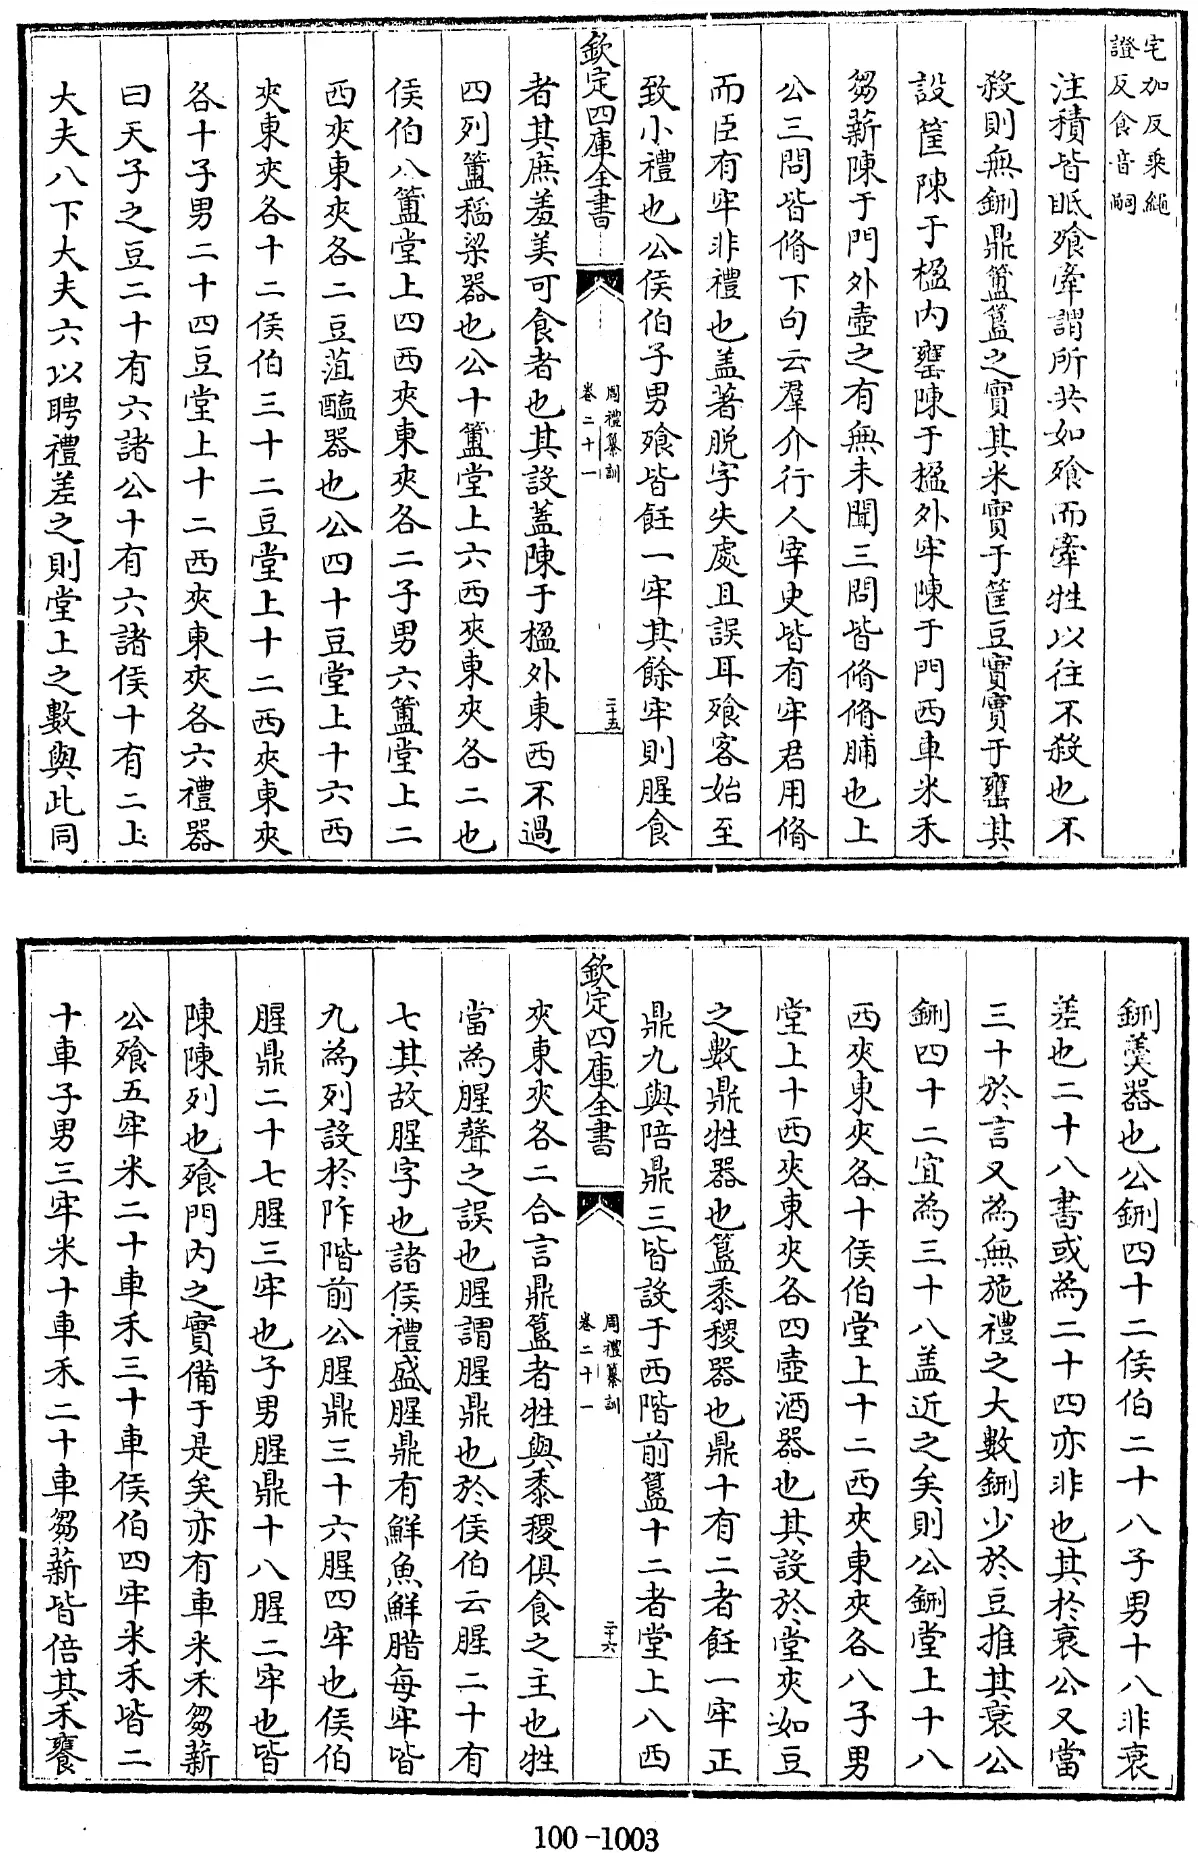 宅加反乘繩
證反食音嗣
注積皆眡飱牽謂所共如飱而牽牲以往不殺也不
殺則無鉶鼎簠簋之實其米實于筐豆實實于罋其
設筐陳于楹内罋陳于楹外牢陳于門西車米禾
芻薪陳于門外壺之有無未聞三問皆脩脩脯也上
公三問皆脩下句云羣介行人宰史皆有牢君用脩
而臣有牢非禮也盖著脱字失處且誤耳飱客始至
致小禮也公侯伯子男飱皆飪一牢其餘牢則腥食
欽定四庫全書
周禮纂訓
卷二十一
二十五
者其庶羞美可食者也其設蓋陳于楹外東西不過
四列簠稻梁器也公十簠堂上六西夾東夾各二也
侯伯八簠堂上四西夾東夾各二子男六簠堂上二
西夾東夾各二豆菹醢器也公四十豆堂上十六西
夾東夾各十二侯伯三十二豆堂上十二西夾東夾
各十子男二十四豆堂上十二西夾東夾各六禮器
曰天子之豆二十有六諸公十有六諸侯十有二上
大夫八下大夫六以聘禮差之則堂上之數與此同
鉶羹器也公鉶四十二侯伯二十八子男十八非衰
差也二十八書或為二十四亦非也其於衰公又當
三十於言又為無施禮之大數鉶少於豆推其衰公
鉶四十二宜為三十八盖近之矣則公鉶堂上十八
西夾東夾各十侯伯堂上十二西夾東夾各八子男
堂上十西夾東夾各四壺酒器也其設於堂夾如豆
之數鼎牲器也簋黍稷器也鼎十有二者飪一牢正
鼎九與陪鼎三皆設于西階前簋十二者堂上八西
欽定四庫全書
周禮纂訓
卷二十一
二十六
夾東夾各二合言鼎簋者牲與黍稷俱食之主也牲
當為腥聲之誤也腥謂腥鼎也於侯伯云腥二十有
七其故腥字也諸侯禮盛腥鼎有鮮魚鮮腊每牢皆
九為列設於阼階前公腥鼎三十六腥四牢也侯伯
腥鼎二十七腥三牢也子男腥鼎十八腥二牢也皆
陳陳列也飱門内之實備于是矣亦有車米禾芻薪
公飱五牢米二十車禾三十車侯伯四牢米禾皆二
十車子男三牢米十車禾二十車芻薪皆倍其禾饔
100-1003